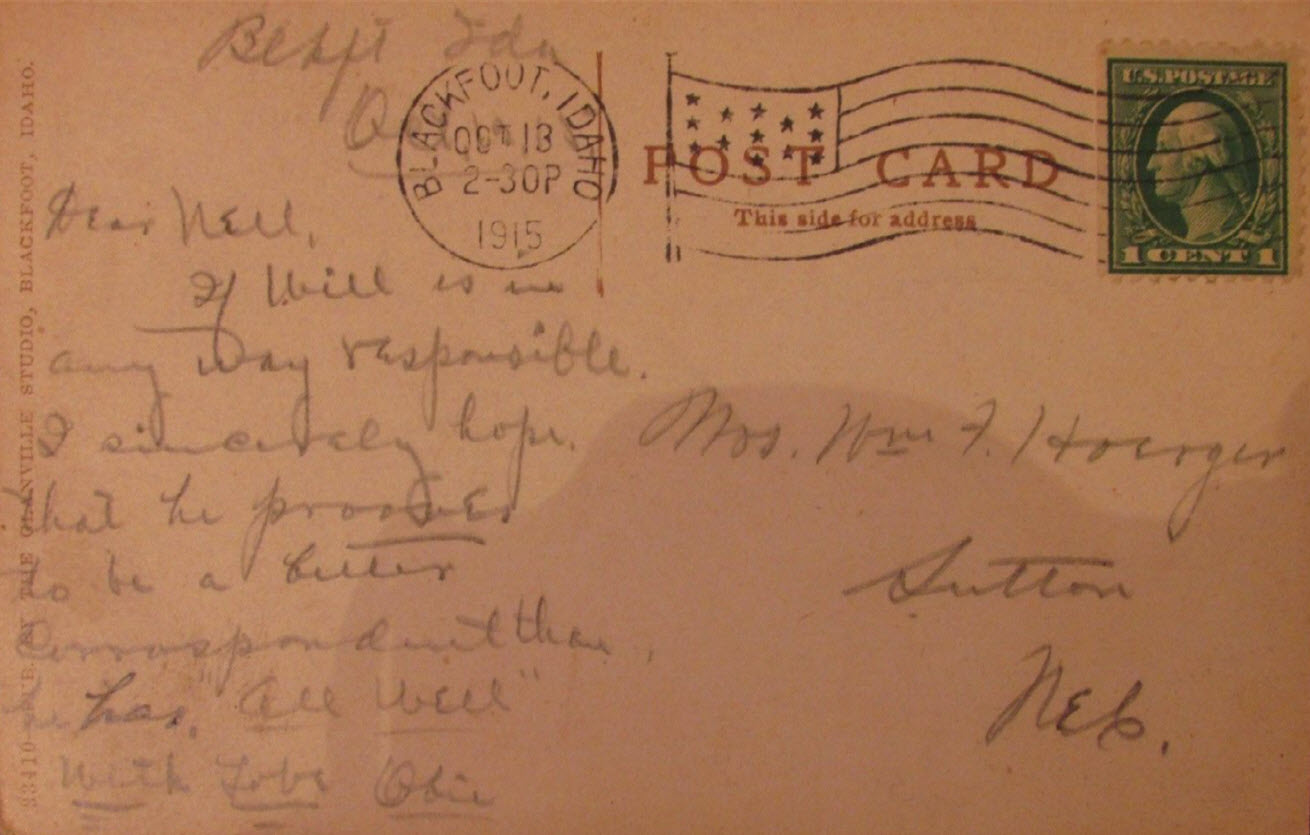 Blkft Ida
BLACKFOOT, IDAHO
OCT 13
2-30P
1915
U.S. POSTAGE
1 CENT 1
POST CARD
This side for address
Dear Nell,
If Will is in
any way responsible.
I sincerely hope.
that he prooves
to be a better
Corrospondent than
he has, "All Well"
With Love
Mrs. Wm F. Hoerger
Sutton
Neb.
93410 PUB. BY THE GLANVILLE STUDIO, BLACKFOOT, IDAHO.